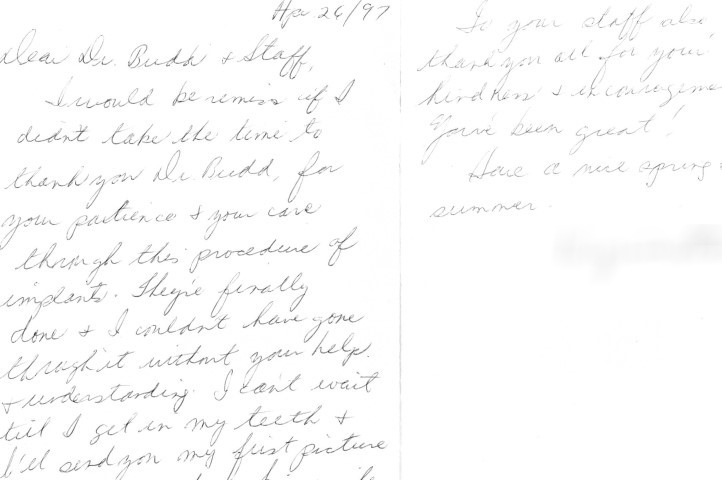 Apr 26/97
Dear Dr. Budd & Staff,
I would be remiss if I
didn't take the time to
thank you Dr. Budd, for
your patience & your care
through this procedure of
implants. They're finally
done & I couldn't have gone
through it without your help.
& understanding. I can't wait
till I get in my teeth &
I'll send you my first picture
To your staff also
thank you all for your
kindness & encouragement
You've been great!
Have a nice spring &
summer.